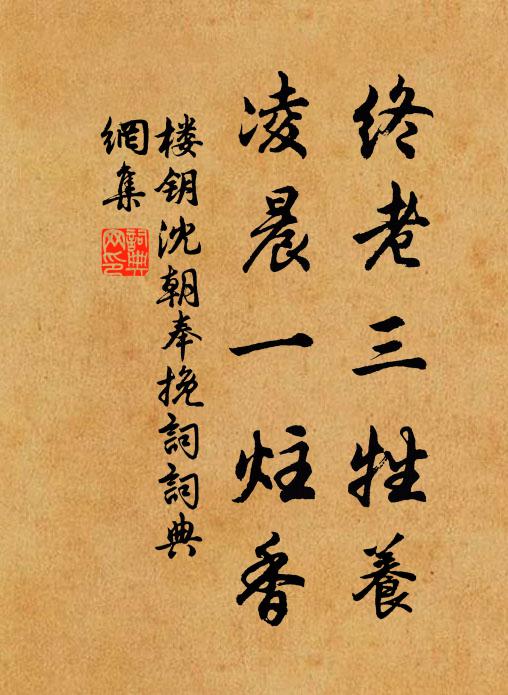 终老三牲養
凌晨一炷香
楼钥沈朝奉挽詞詞典
網集
詞典
网印